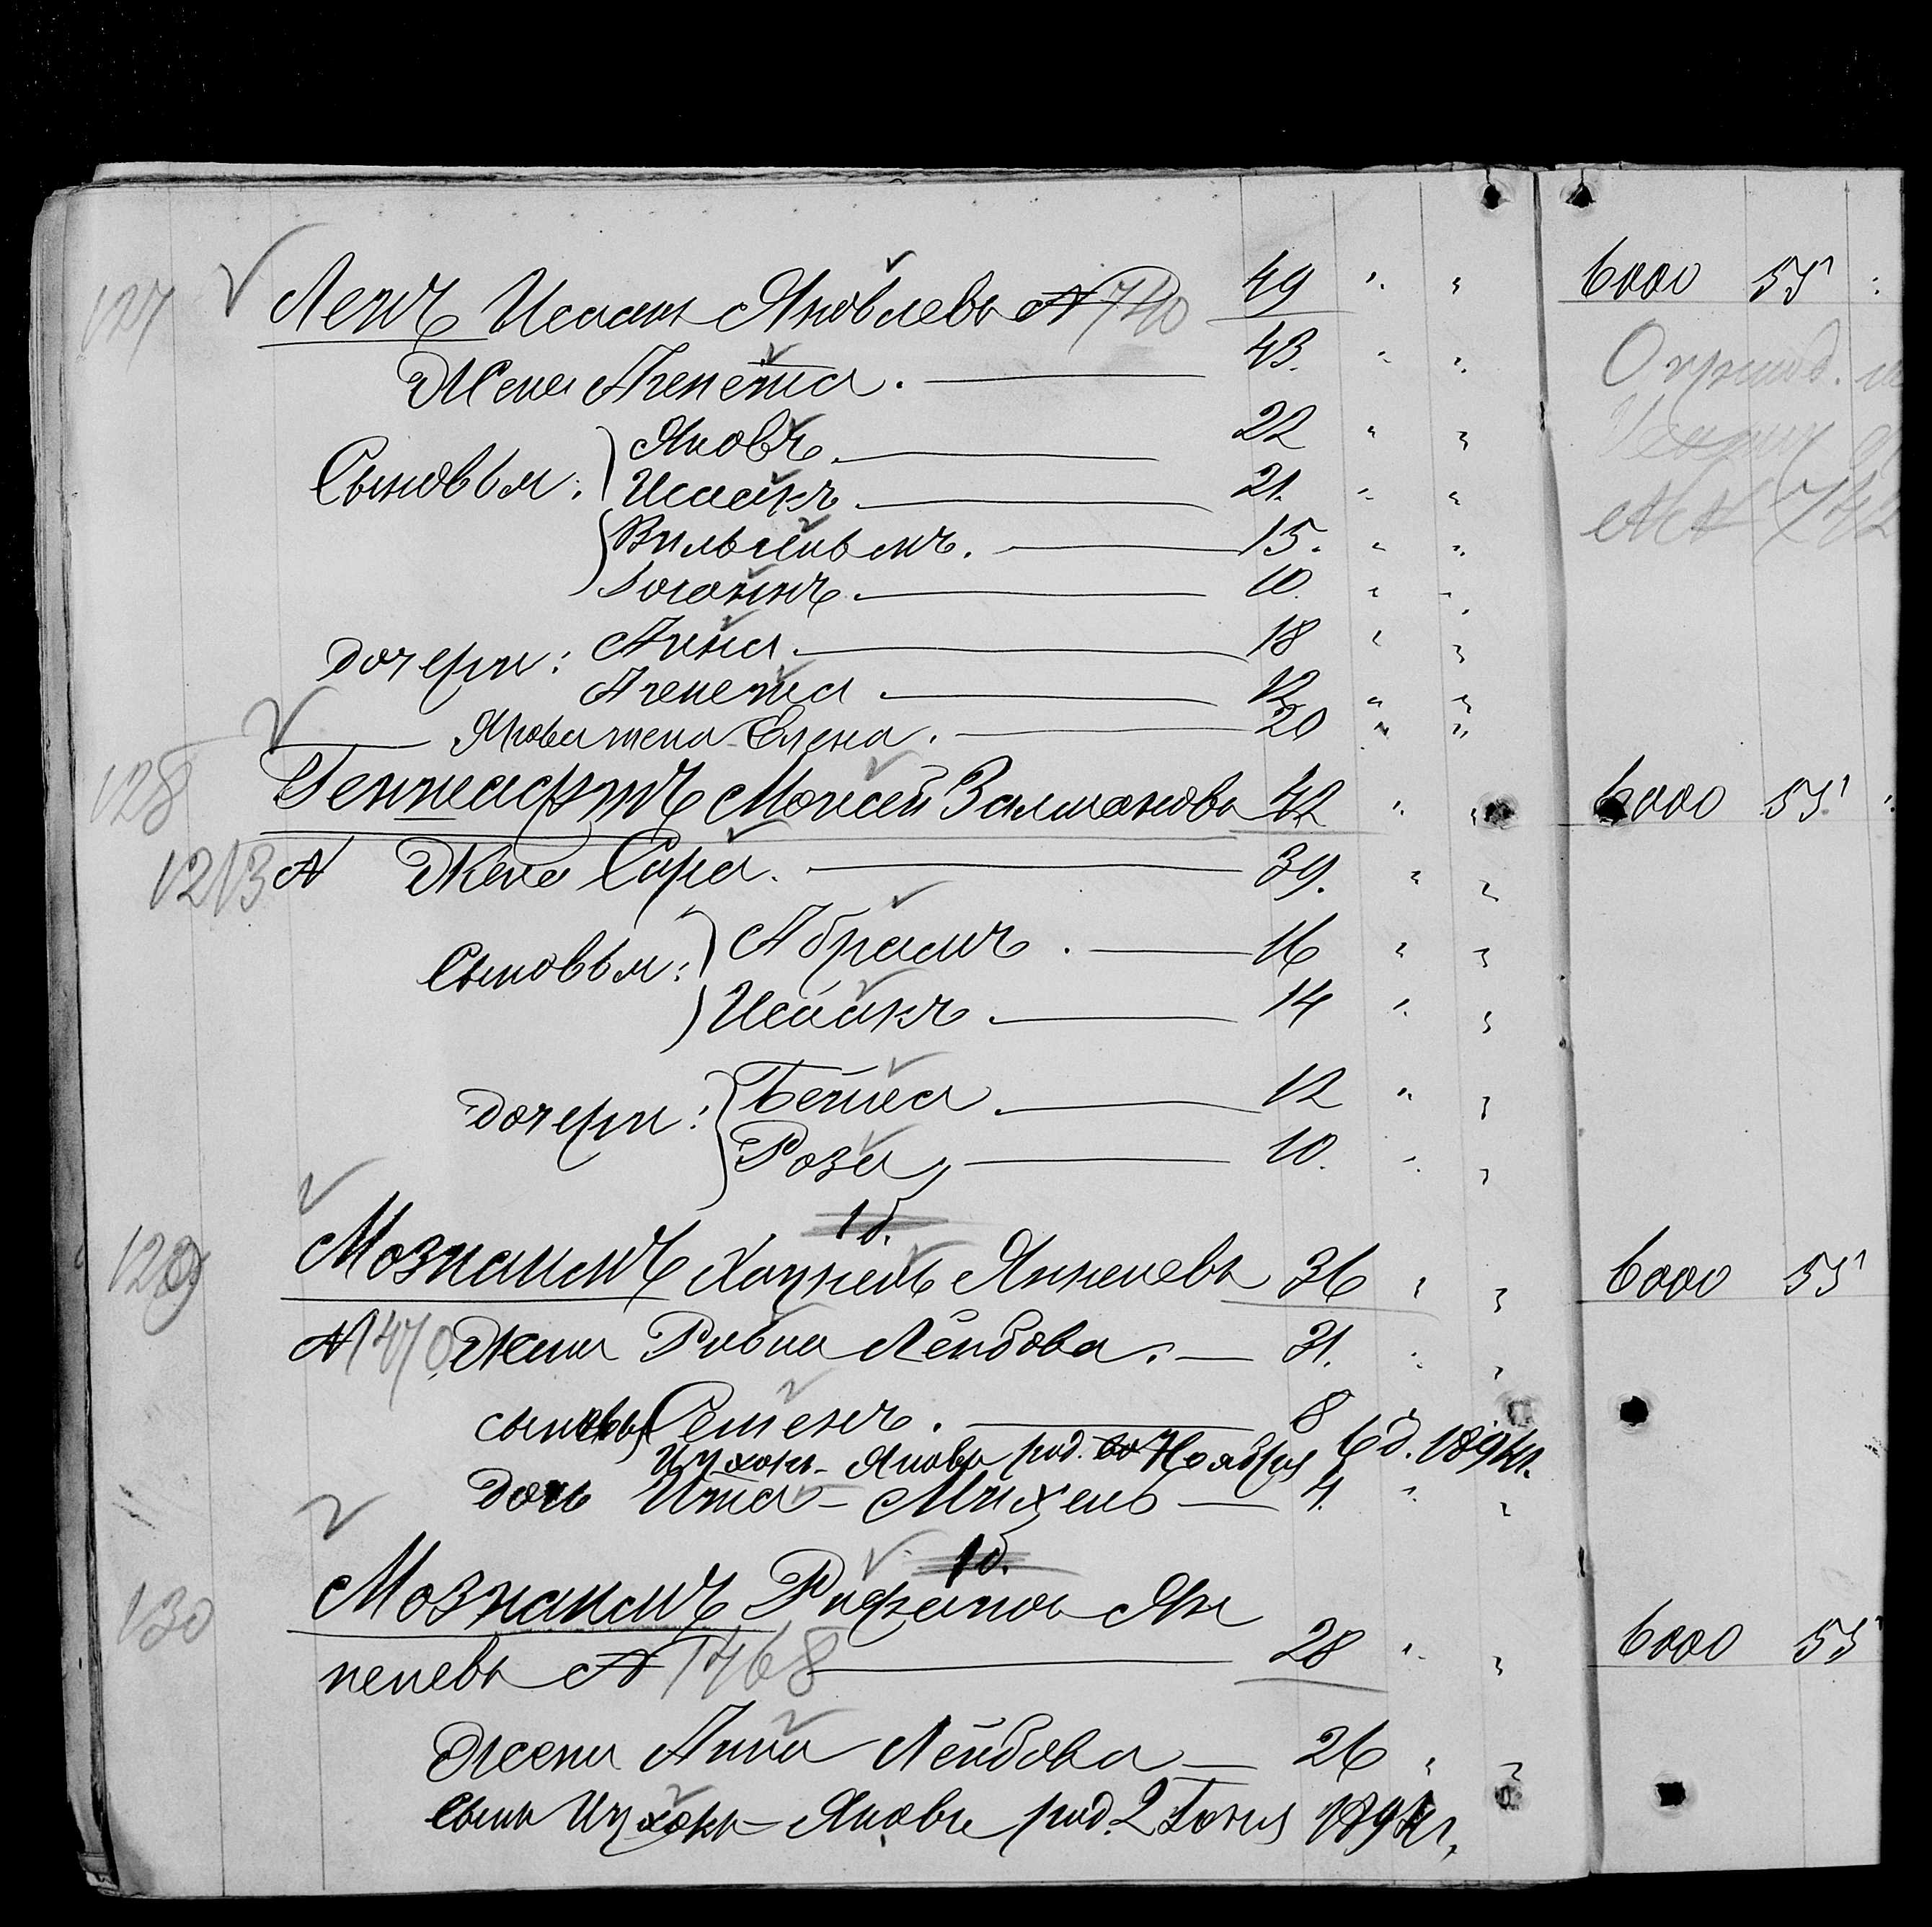 127 Ленъ Исаакъ Яковлевъ № 740 49 " " 6000 55 "
Жена Агнета. 43. " "
Яковъ. 22 " "
Сыновья: Исаакъ. 21. " "
Вильгельмъ. 15. " "
Іоганнъ. 10. " "
Дочери: Анна. 18 " "
Агнета. 12 " "
Якова жена Елена. 20 " "
128 Моисей Залмановъ 42 " " 6000 55 "
1213 № Жена Сара. 39. " "
Сыновья: Абрамъ. 16 " "
Исаакъ. 14 " "
Дочери: Бетя. 12 " "
Роза, 10. " "
1 д.
129 Мознаимъ Хацкель Янкелевъ 36 " " 6000 55
№ 1470 Жена Ривка Лейбова. 31. " "
сыновья Семенъ. 8 " "
Ицхокъ-Яковъ род. Ноября 6 д. 1894 г.
дочь Ита-Михель 4. " "
1 д.
130 Мознаимъ Рафаилъ Ян
келевъ № 1468 28 " " 6000 55
Жена Анна Лейбова 26 " "
Сынъ Ицхокъ-Яковъ род. 2 Іюня 1894 г.